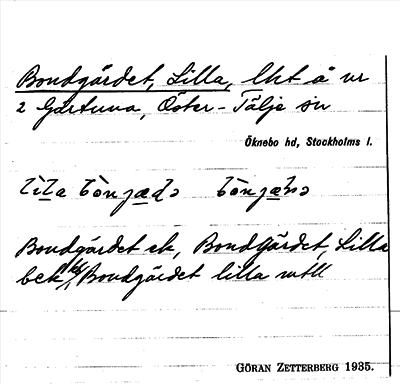 Bondgärdet, Lilla, lht å nr
2 Gärtuna, Öster-Tälje sn
Öknebo hd, Stockholms l.
Bondgärdet ek, Bondgärdet, Lilla
bek Bondgärdet lilla mtll
GÖRAN ZETTERBERG 1935.